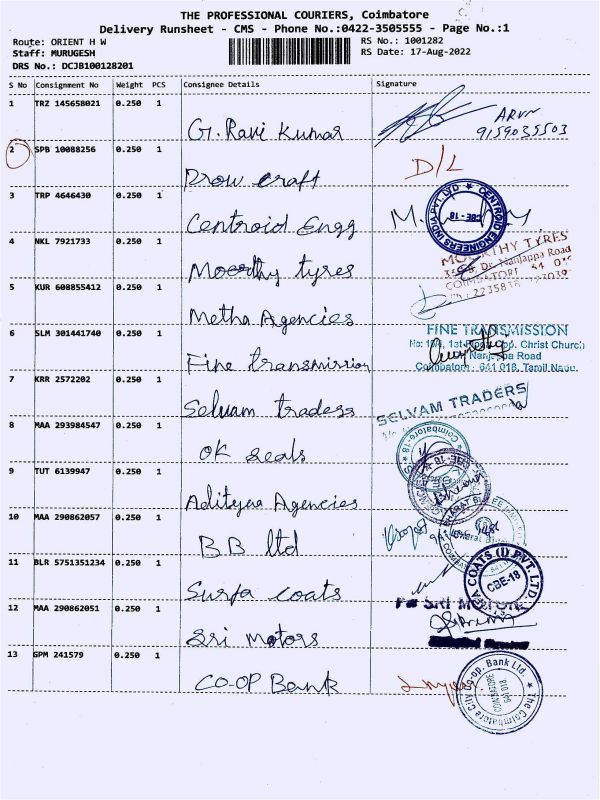 THE PROFESSIONAL COURIERS, Coimbatore
Delivery Runsheet - CMS - Phone No.:0422-3505555 - Page No.:1
Route: ORIENT H W
RS No.: 1001282
Staff: MURUGESH
RS Date: 17-Aug-2022
DRS No.: DCJB100128201
S No Consignment No Weight PCS Consignee Details Signature
1 TRZ 145658021 0.250 1 G. Ravi Kumar ARUN 9159035503
2 SPB 10088256 0.250 1 Prow craft D/L
3 TRP 4646430 0.250 1 Centroid Engg CENTROID ENGINEERS INDIA PVT. LTD CBE-18
4 NKL 7921733 0.250 1 Moorthy tyres MOORTHY TYRES
Dr. Nanjappa Road
COIMBATORE
5 KUR 608855412 0.250 1 Metha Agencies
6 SLM 301441740 0.250 1 Fine transmission FINE TRANSMISSION
Christ Church
Nanjappa Road
Coimbatore - 641 018, Tamil Nadu.
7 KRR 2572202 0.250 1 Selvam traders SELVAM TRADERS
8 MAA 293984547 0.250 1 OK seals Coimbatore-18
9 TUT 6139947 0.250 1 Adityaa Agencies
10 MAA 290862057 0.250 1 B.B ltd
11 BLR 5751351234 0.250 1 Surfa coats COATS (I) PVT. LTD CBE-18
12 MAA 290862051 0.250 1 Sri Motors For SRI MOTORS
13 GPM 241579 0.250 1 CO-OP Bank The Coimbatore City Co-op. Bank Ltd. 641 018